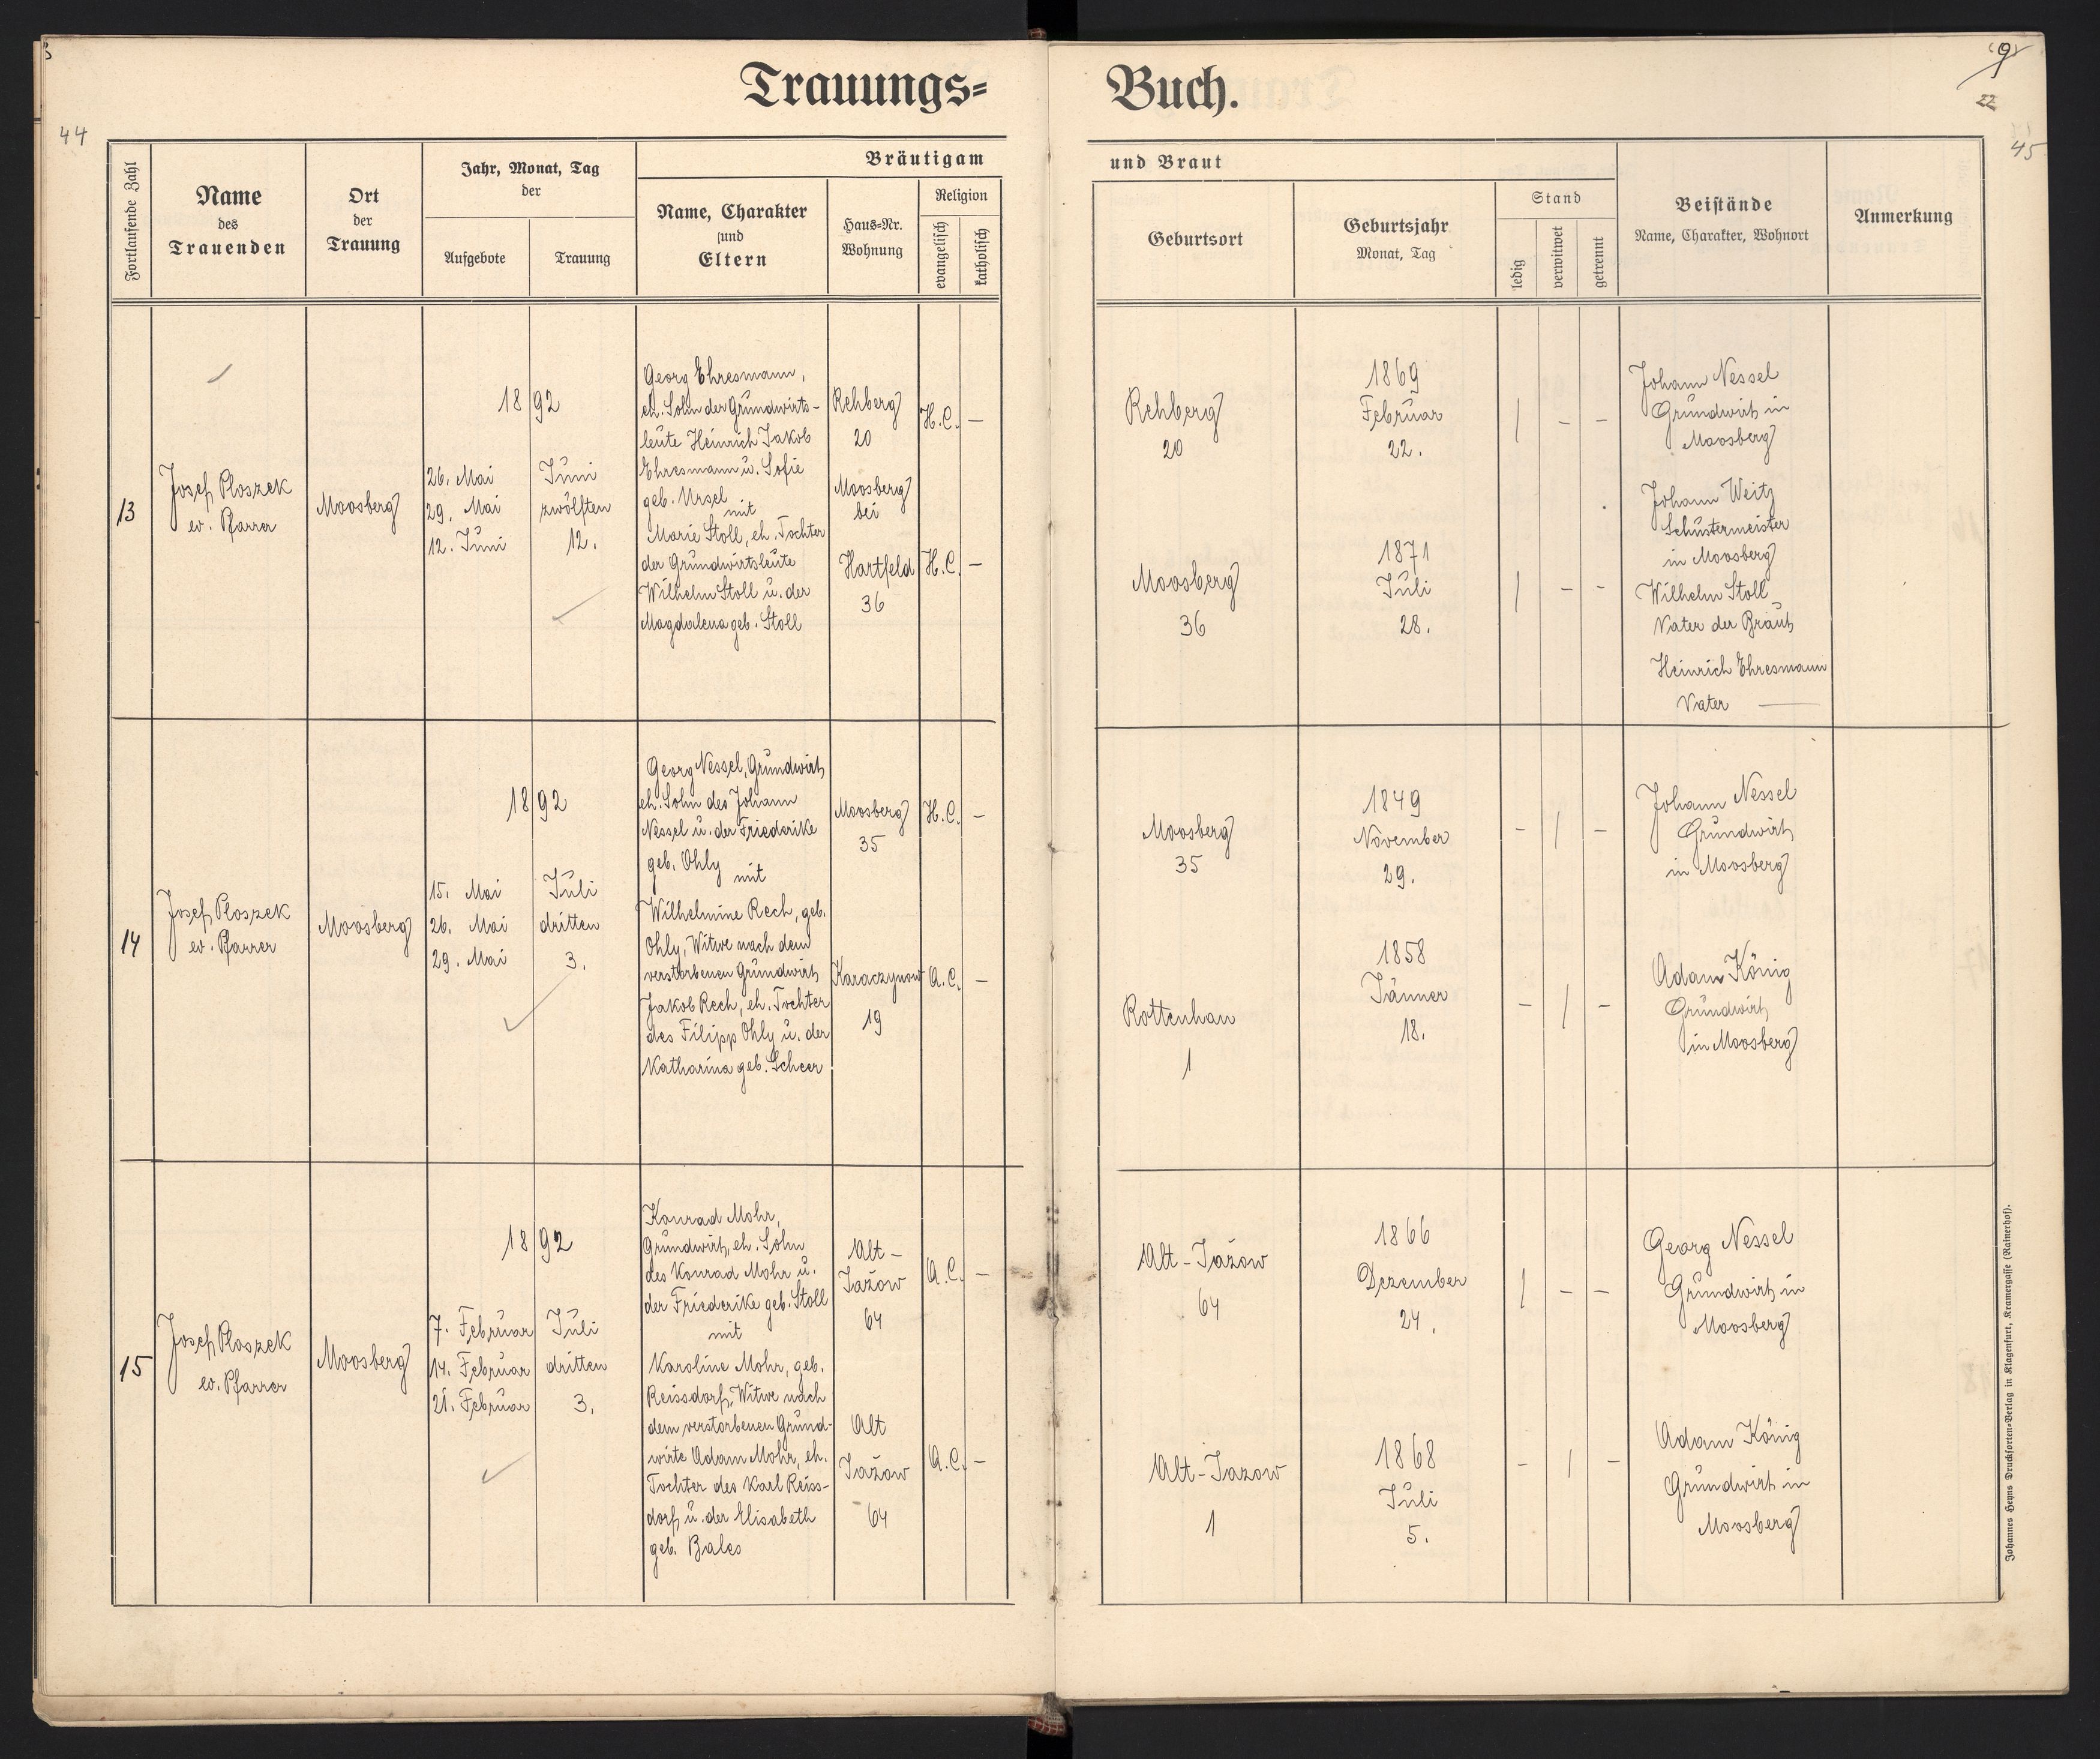 Trauungs=
Buch.
44
9
22
45
Fortlaufende Zahl
Name
des
Trauenden
Ort
der
Trauung
Jahr, Monat, Tag
der
Aufgebote
Trauung
Bräutigam
Name, Charakter
und
Eltern
Haus=Nr.
Wohnung
Religion
evangelisch
katholisch
und Braut
Geburtsort
Geburtsjahr
Monat, Tag
Stand
ledig
verwitwet
getrennt
Beistände
Name, Charakter, Wohnort
Anmerkung
13
Josef Ploszek
ev. Pfarrer
Moosberg
1892
26. Mai
29. Mai
12. Juni
Juni
zwölften
12.
Georg Ehresmann,
eh. Sohn der Grundwirts-
leute Heinrich Jakob
Ehresmann u. Sofie
geb. Ursel
mit
Marie Stoll, eh. Tochter
der Grundwirtsleute
Wilhelm Stoll u. der
Magdalena geb. Stoll
Rehberg
20
Moosberg
bei
Hartfeld
36
H.C. –
H.C. –
Rehberg
20
Moosberg
36
1869
Februar
22.
1871
Juli
28.
| – –
| – –
Johann Nessel
Grundwirt in
Moosberg
Johann Weitz
Schustermeister
in Moosberg
Wilhelm Stoll
Vater der Braut
Heinrich Ehresmann
Vater —
14
Josef Ploszek
ev. Pfarrer
Moosberg
1892
15. Mai
26. Mai
29. Mai
Juli
dritten
3.
Georg Nessel, Grundwirt
eh. Sohn des Johann
Nessel u. der Friederike
geb. Ohly
mit
Wilhelmine Rech, geb.
Ohly, Witwe nach dem
verstorbenen Grundwirt
Jakob Rech, eh. Tochter
des Filipp Ohly u. der
Katharina geb. Scheer
Moosberg
35
Karaczynow
19
H.C. –
A.C. –
Moosberg
35
Rottenhan
1
1849
November
29.
1858
Jänner
18.
– | –
– | –
Johann Nessel
Grundwirt
in Moosberg
Adam König
Grundwirt
in Moosberg
15
Josef Ploszek
ev. Pfarrer
Moosberg
1892
7. Februar
14. Februar
21. Februar
Juli
dritten
3.
Konrad Mohr,
Grundwirt, eh. Sohn
des Konrad Mohr u.
der Friederike geb. Stoll
mit
Karoline Mohr, geb.
Reissdorf, Witwe nach
dem verstorbenen Grund-
wirte Adam Mohr, eh.
Tochter des Karl Reiss-
dorf u. der Elisabeth
geb. Bales
Alt-
Jažow
64
Alt
Jažow
64
A.C. –
A.C. –
Alt-Jažow
64
Alt-Jazow
1
1866
Dezember
24.
1868
Juli
5.
| – –
– | –
Georg Nessel
Grundwirt in
Moosberg
Adam König
Grundwirt in
Moosberg
Johannes Heyns Drucksorten=Verlag in Klagenfurt, Kramergasse (Rainerhof).